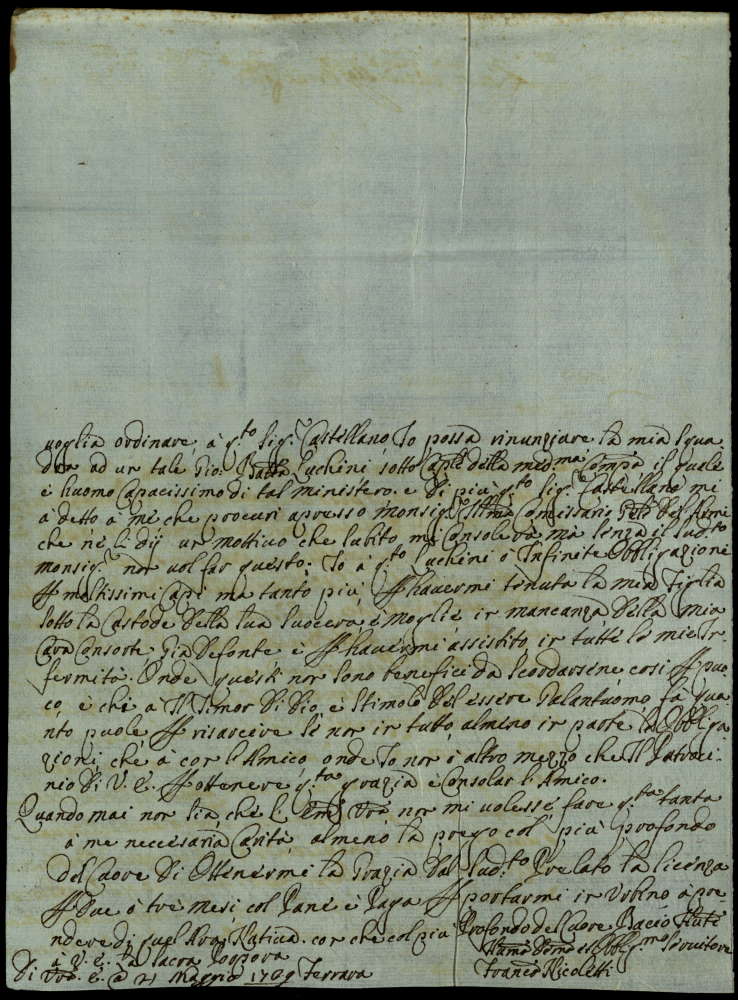 voglia ordinare, à q.to Sig.r Castellano, Io possa rinunziare la mia squa
dra ad un tale Gio: Batta Luchini sotto Cap.le della med.ma Comp.a il quale
è huomo Capacissimo di tal ministero. e di più q.to Sig.r Castellano mi
à detto à me che procuri apresso monsig.r Ill.mo Comissario dell'Armi
che ne li dij un mottivo che subito mi Consolerà mà senza il sud.to
monsig.r non vol far questo; Io à q.to Luchini ò Infinite Obbligazioni
P moltissimi Capi ma tanto più P havermi tenuta la mia figlia
sotto la Custode della sua Suocera, è moglie in mancanza della mia
Cara Consorte Già Defonta è P havermi assistito in tutte le mie In
fermità. Onde questi non sono benefici da scordarsene così P puo
co, è chi à Il Timor di Dio, è stimolo del essere Galantuomo fà qua
nto puole P risarcire se non in tutto almeno in parte la Obbliga
zioni che à con l'Amico, onde Io non ò altro mezzo che Il Patroci
nio di V. E. P ottenere q.ta grazia è Consolar l'Amico.
Quando mai non sia, che L' non mi volesse fare q.ta tanta
à me necessaria Carità, almeno la prego col più profondo
del Cuore di Ottenermi la Grazia dal Sud.to Prelato la licenza
P due ò tre mesi col Pane è Paga P portarmi in Urbino à pre
ndere di quel Aria Natiua. con che col più Profondo del Cuore Bacio
à V. E. la Sacra Porpora
Di V. E. @ 21 Maggio 1709 Ferrara
Hum.mo Obblig.mo Servitore
Franc.o Nicoletti